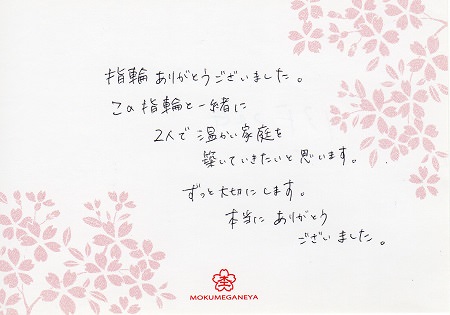 指輪ありがとうございました。
この指輪と一緒に
2人で温かい家庭を
築いていきたいと思います。
ずっと大切にします。
本当にありがとう
ございました。
杢
MOKUMEGANEYA